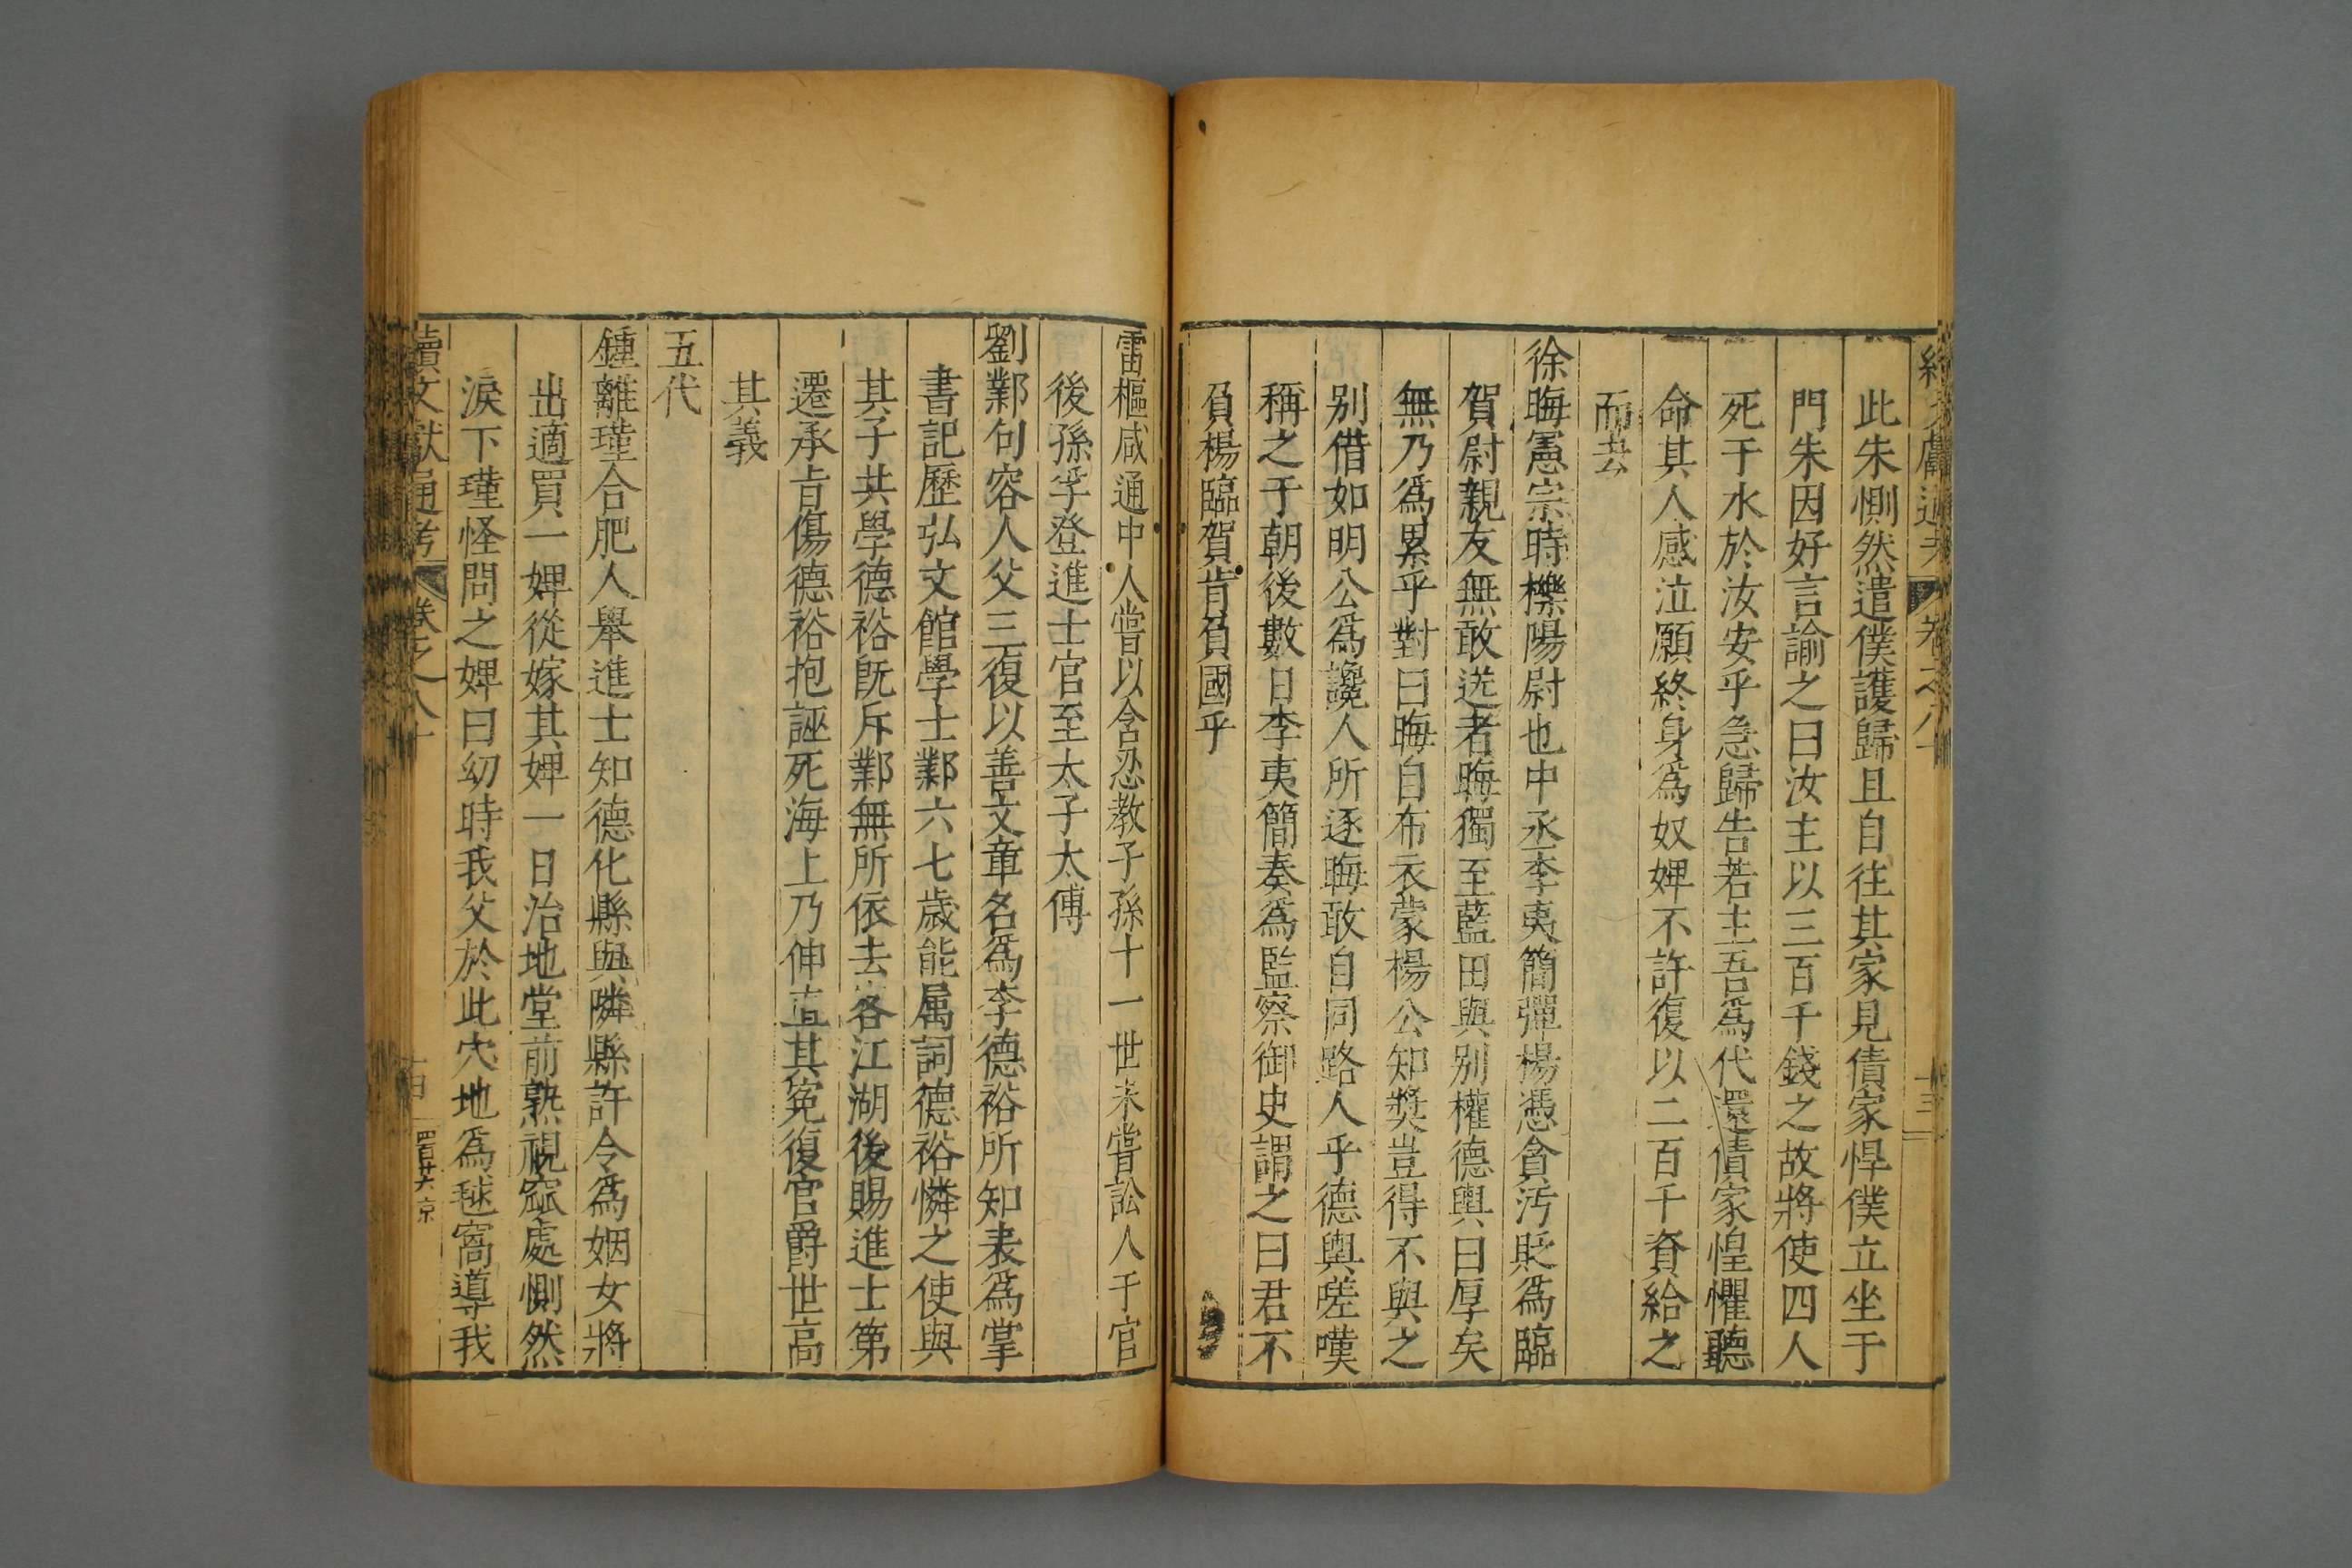 此朱惻然遣僕護歸且自往其家見債家悍僕立坐于
門朱因好言諭之曰汝主以三百千錢之故將使四人
死于水於汝安乎急歸告若主吾爲代還債家惶懼聽
命其人感泣願終身爲奴婢不許復以二百千資給之
而去
徐晦憲宗時櫟陽尉也中丞李夷簡彈楊憑貪污貶爲臨
賀尉親友無敢送者晦獨至藍田與别權德輿曰厚矣
無乃爲累乎對曰晦自布衣蒙楊公知獎豈得不與之
别借如明公爲讒人所逐晦敢自同路人乎德輿嗟嘆
稱之于朝後數日李夷簡奏爲監察御史謂之曰君不
負楊臨賀肯負國乎
雷樞咸通中人嘗以含忍教子孫十一世未嘗訟人于官
後孫孚登進士官至太子太傅
劉鄴句容人父三復以善文章名爲李德裕所知表爲掌
書記歷弘文館學士鄴六七歲能属詞德裕憐之使與
其子共學德裕既斥鄴無所依去客江湖後賜進士第
遷承旨傷德裕抱誣死海上乃伸直其冤復官爵世高
其義
五代
鍾離瑾合肥人舉進士知德化縣與隣縣許令爲姻女將
出適買一婢從嫁其婢一日治地堂前熟視窊處惻然
淚下瑾怪問之婢曰幼時我父於此穴地爲毬窩導我
續文獻通考 卷之八十